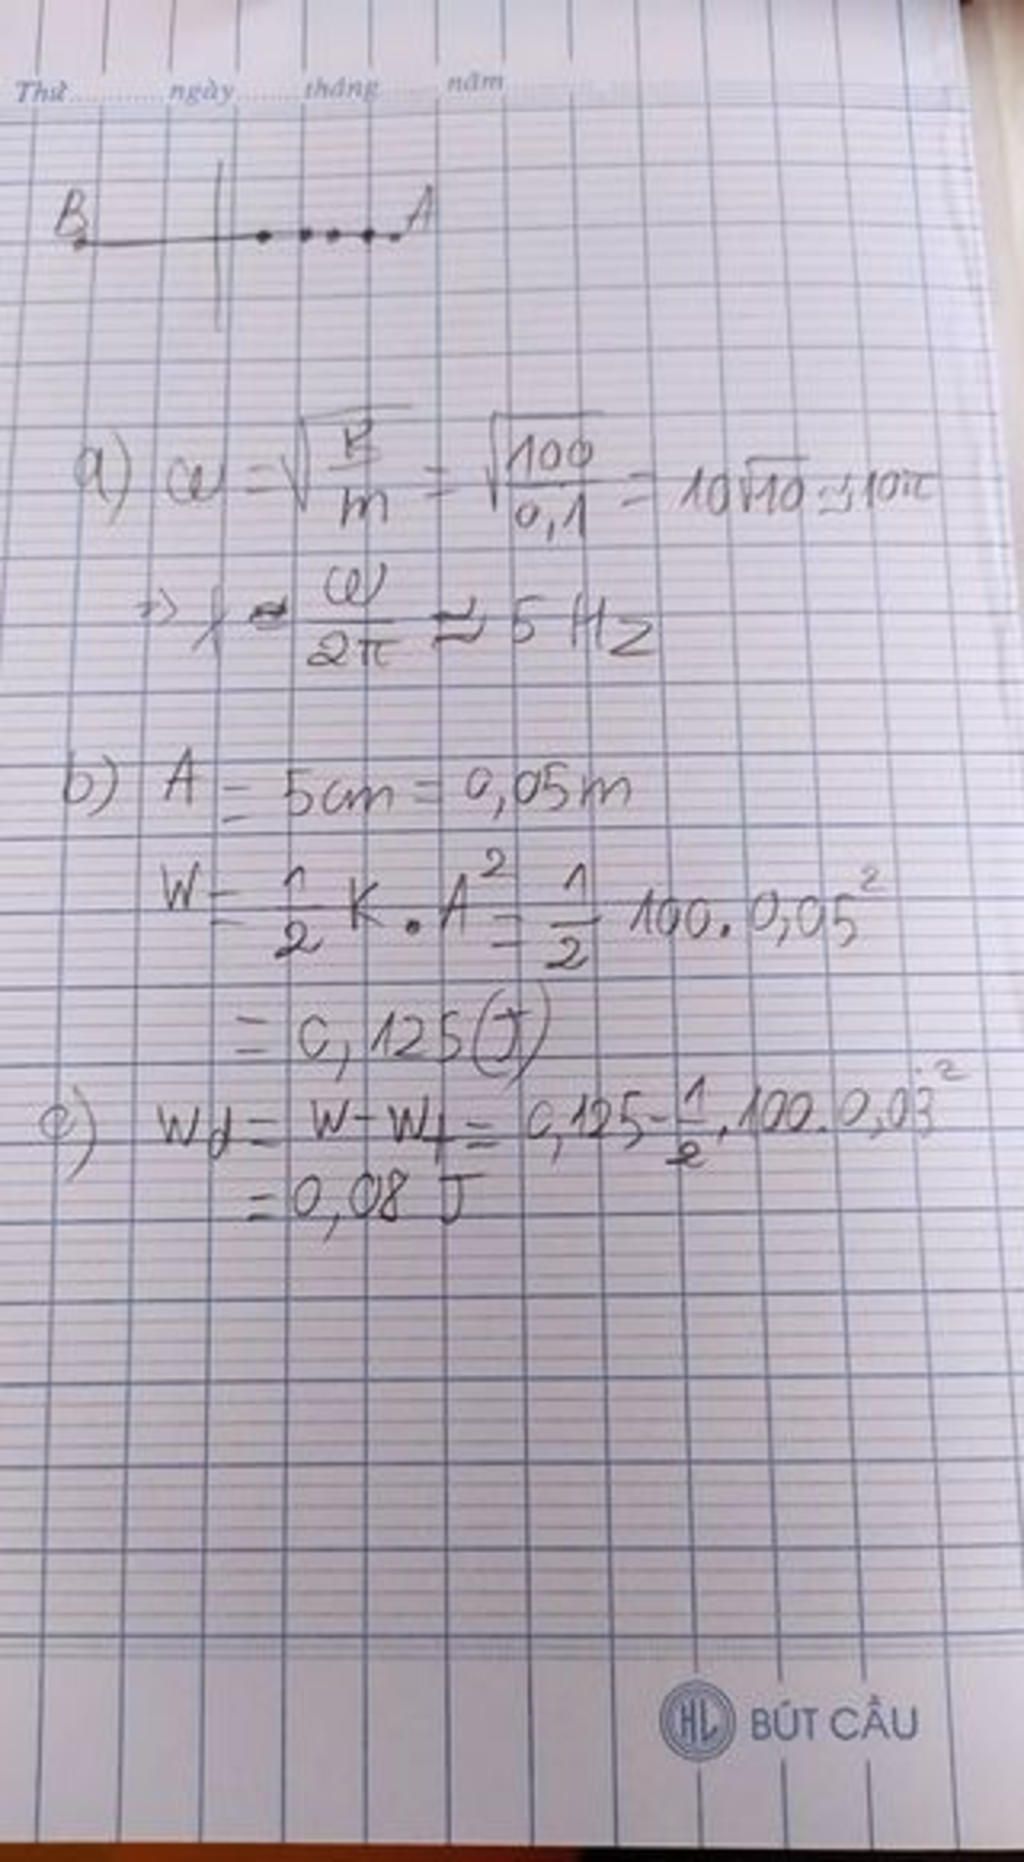 Thứ ngày tháng năm
B A
a) ω = √(k/m) = √(100/0,1) = 10√10 ≈ 10π
=> f = ω/2π ≈ 5 Hz
b) A = 5cm = 0,05m
W = 1/2 K . A² = 1/2 100 . 0,05²
= 0,125 (J)
c) Wd = W - Wt = 0,125 - 1/2 . 100 . 0,03²
= 0,08 J
HL BÚT CẦU